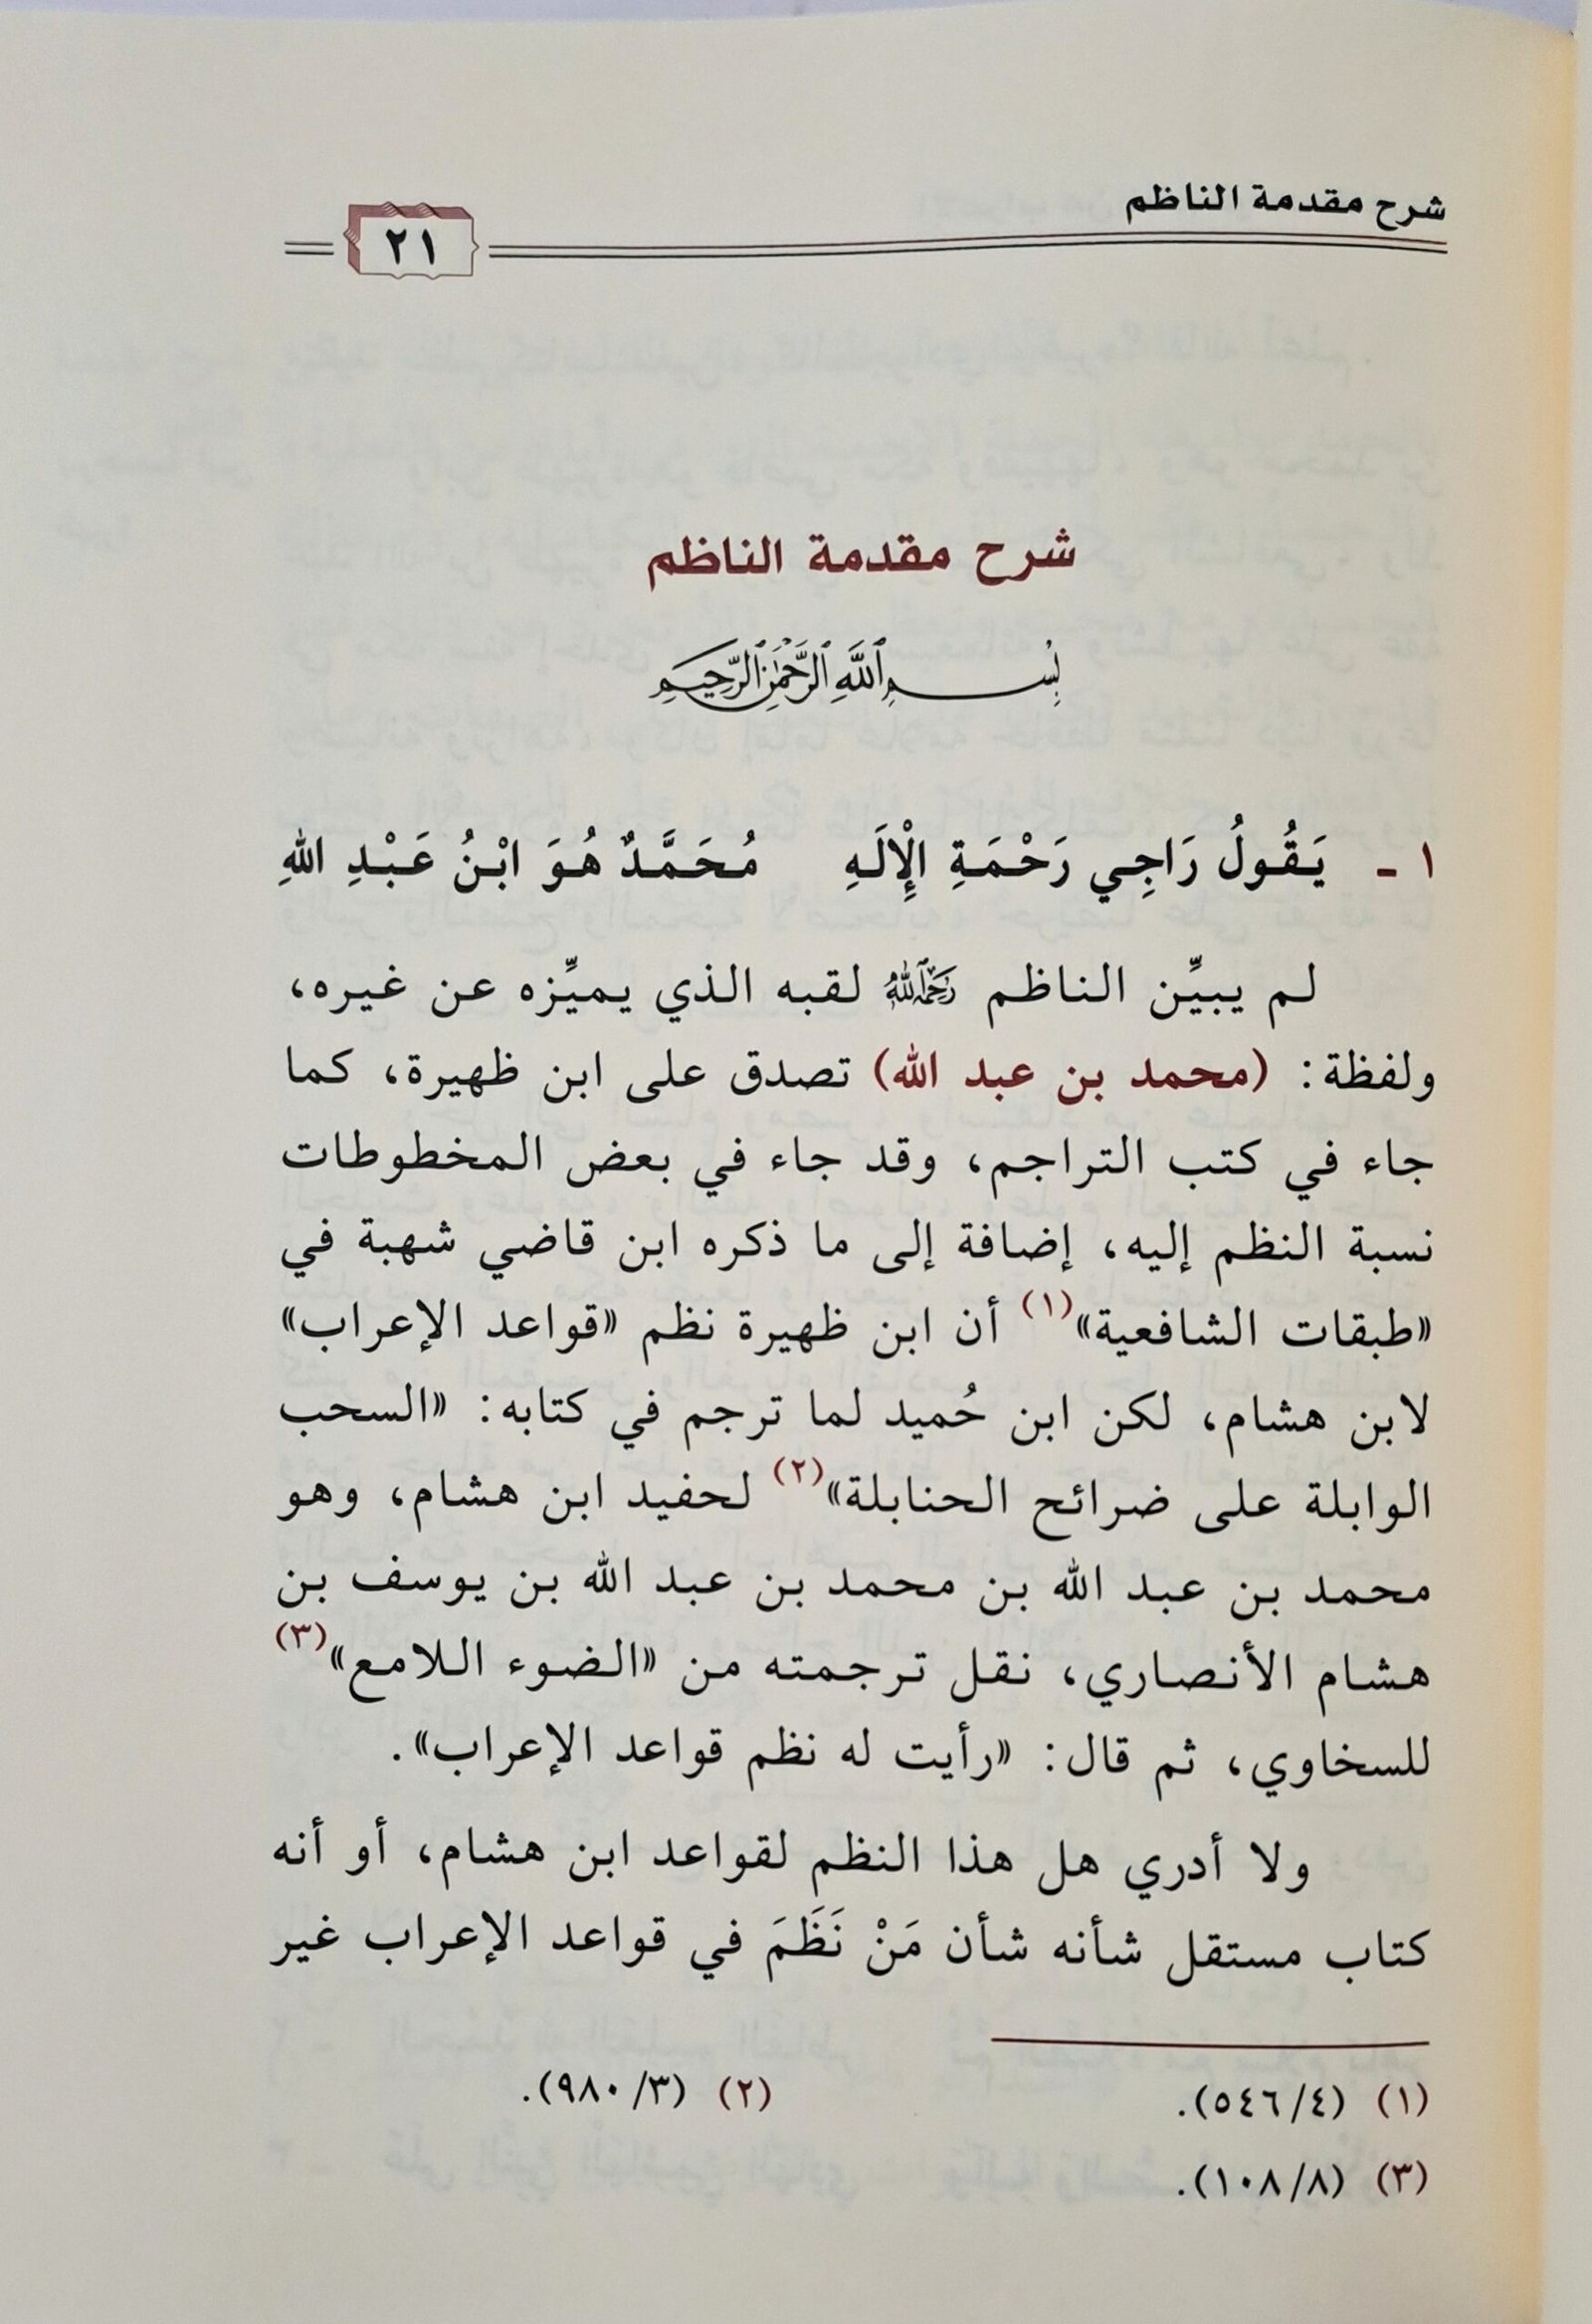 شرح مقدمة الناظم
٢١
شرح مقدمة الناظم
بِسْمِ اللَّهِ الرَّحْمَٰنِ الرَّحِيمِ
١ - يَقُولُ رَاجِي رَحْمَةِ الْإِلَهِ مُحَمَّدٌ هُوَ ابْنُ عَبْدِ اللهِ
لم يبيِّن الناظم رَحِمَهُ اللهُ لقبه الذي يميِّزه عن غيره،
ولفظة: (محمد بن عبد الله) تصدق على ابن ظهيرة، كما
جاء في كتب التراجم، وقد جاء في بعض المخطوطات
نسبة النظم إليه، إضافة إلى ما ذكره ابن قاضي شهبة في
«طبقات الشافعية»(١) أن ابن ظهيرة نظم «قواعد الإعراب»
لابن هشام، لكن ابن حُميد لما ترجم في كتابه: «السحب
الوابلة على ضرائح الحنابلة»(٢) لحفيد ابن هشام، وهو
محمد بن عبد الله بن محمد بن عبد الله بن يوسف بن
هشام الأنصاري، نقل ترجمته من «الضوء اللامع»(٣)
للسخاوي، ثم قال: «رأيت له نظم قواعد الإعراب».
ولا أدري هل هذا النظم لقواعد ابن هشام، أو أنه
كتاب مستقل شأنه شأن مَنْ نَظَمَ في قواعد الإعراب غير
(١) (٥٤٦/٤). (٢) (٩٨٠/٣).
(٣) (١٠٨/٨).